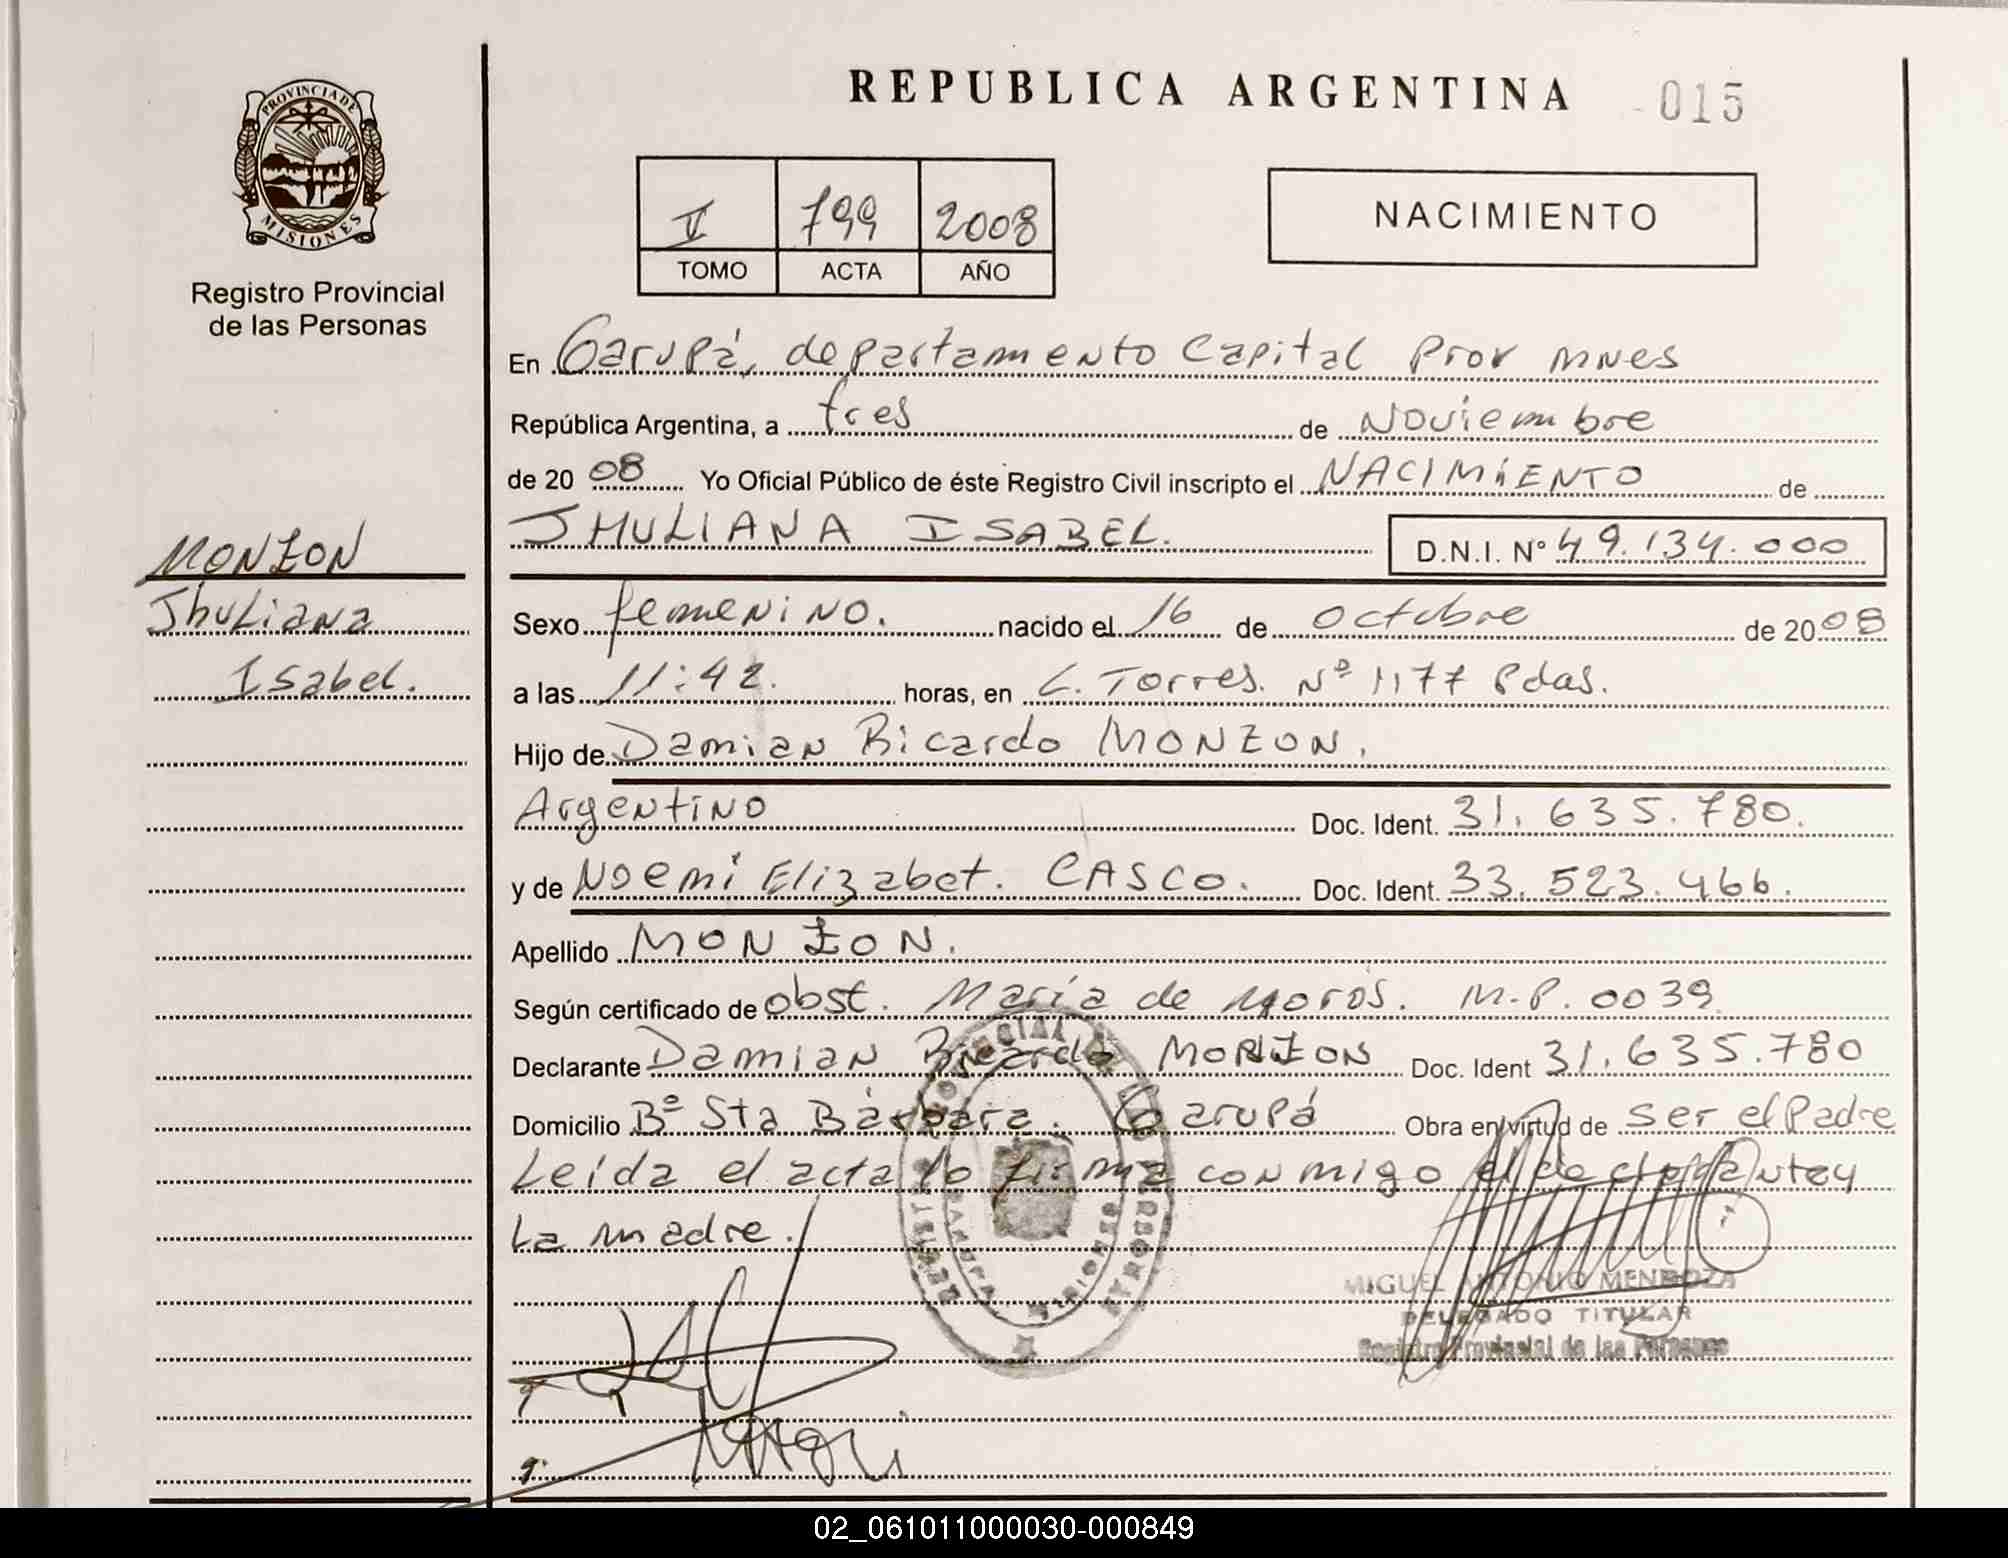 REPUBLICA ARGENTINA 015
PROVINCIA DE
MISIONES
Registro Provincial
de las Personas
V 799 2008
TOMO ACTA AÑO
NACIMIENTO
En Garupá, departamento Capital Prov Mnes
República Argentina, a tres de Noviembre
de 20 08 Yo Oficial Público de éste Registro Civil inscripto el NACIMIENTO de
JHULIANA ISABEL. D.N.I. Nº 49.134.000
MONZON
Jhuliana
Isabel.
Sexo femenino. nacido el 16 de octubre de 20 08
a las 11:42. horas, en C. Torres. Nº 1177 Pdas.
Hijo de Damian Ricardo MONZON,
Argentino Doc. Ident. 31.635.780.
y de Noemi Elizabet. CASCO. Doc. Ident. 33.523.466.
Apellido MONZON.
Según certificado de obst. María de Moros. M.P. 0039
Declarante Damian Ricardo MONZON Doc. Ident 31.635.780
Domicilio Bº Sta Bárbara. Garupá Obra en virtud de ser el Padre
Leída el acta lo firma conmigo el declarante y
la madre.
MIGUEL ANTONIO MENDOZA
DELEGADO TITULAR
Registro Provincial de las Personas
02_061011000030-000849